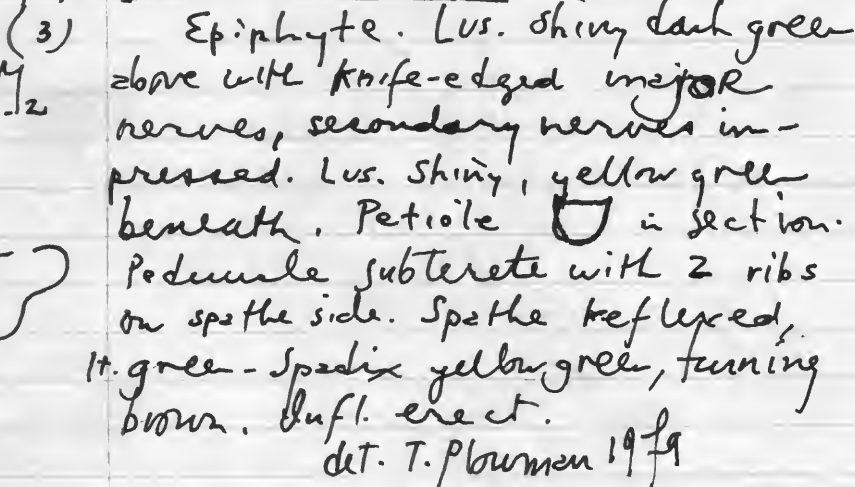 (3) Epiphyte. Lvs. shiny dark green
above with knife-edged major
nerves, secondary nerves im-
pressed. Lvs. shiny, yellow green
beneath. Petiole in section.
Peduncle subterete with 2 ribs
on spathe side. Spathe reflexed,
lt. green - Spadix yellow green, turning
brown. Infl. erect.
det. T. Plowman 19